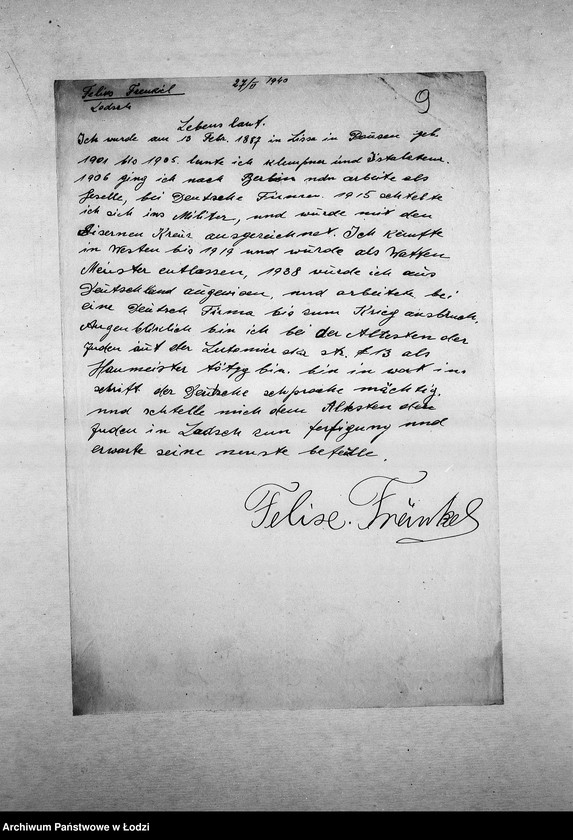 Felix Frenkel
27/II 1940
9
Ladsch
Lebens lauf.
Ich wurde am 10 Febr. 1887 in Lissa in Pousen geb.
1901 bis 1905. lernte ich klempner und Istalateur.
1906 ging ich nach Berlin ndn arbeite als
Geselle, bei Deutsche Firmen. 1915 schtelte
ich sich ins Militer, und würde mit den
Eisernen Kreuz ausgezeichnet. Ich kempfte
in Westen bis 1919 und würde als Waffen
Meister entlassen, 1938 würde ich aus
Deutschland augewisen, und arbeitete bei
eine Deutsch Firma bis zum Krieg ausbruch.
Augen bliklich bin ich bei der Altesten der
Juden auf der Lutomirska str. # 13 als
Haumeister tötzg bin. bin in wort ins
schrift der Deutsche schprache mächtig.
und schtelle mich dem Altesten der
Juden in Ladsch zur ferfigung und
erwarte seine neuste befehle.
Felise. Fränkel
Archiwum Państwowe w Łodzi